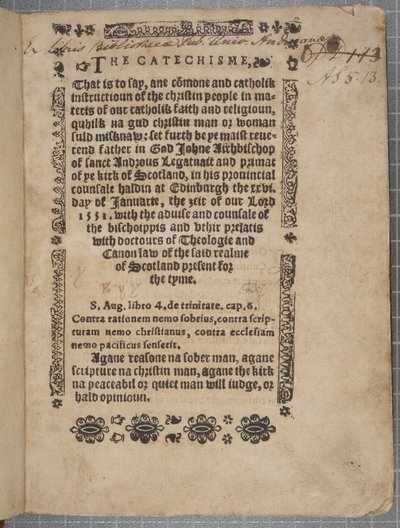 Ex Libris Bibliothecæ Pub. Univ. Andreanæ
AS 5.13
THE CATECHISME,
That is to say, ane cõmone and catholik
instructioun of the christin people in ma-
teris of our catholik faith and religioun,
quhilk na gud christin man or woman
suld misknaw: set furth be ye maist reue-
rend father in God Johne Archbischop
of sanct Androus Legatnait and primat
of ye kirk of Scotland, in his prouincial
counsale haldin at Edinburgh the xxvi.
day of Januarie, the ȝeir of our Lord
1551. with the aduise and counsale of
the bischoippis and vthir prelatis
with doctours of Theologie and
Canon law of the said realme
of Scotland present for
the tyme.
S. Aug. libro 4. de trinitate. cap. 6.
Contra rationem nemo sobrius, contra scrip-
turam nemo christianus, contra ecclesiam
nemo pacificus senserit.
Agane reasone na sober man, agane
scripture na christin man, agane the kirk
na peaceabil or quiet man will iudge, or
hald opinioun.